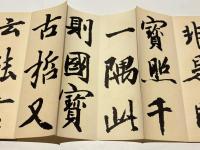 寶照千
一隅此
則國寶
古哲又
云能言